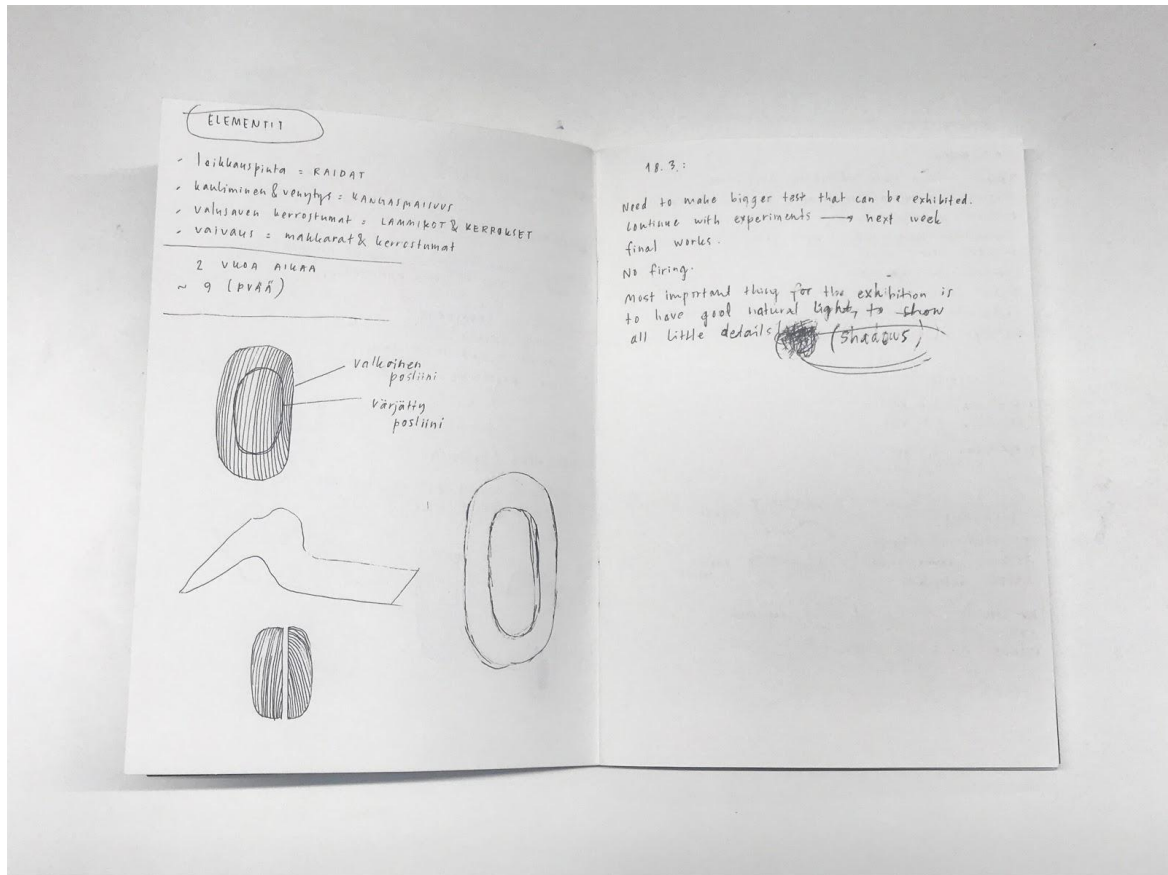 ELEMENTIT
- leikkauspinta = RAIDAT
- kauliminen & venytys = KANGASMAISUUS
- valusaven kerrostumat = LAMMIKOT & KERROKSET
- vaivaus = makkarat & kerrostumat
2 VKOA AIKAA
~ 9 (PVÄÄ)
valkoinen
posliini
värjätty
posliini
18.3.:
Need to make bigger test that can be exhibited.
Continue with experiments → next week
final works.
No firing.
Most important thing for the exhibition is
to have good natural light, to show
all little details (shadows)